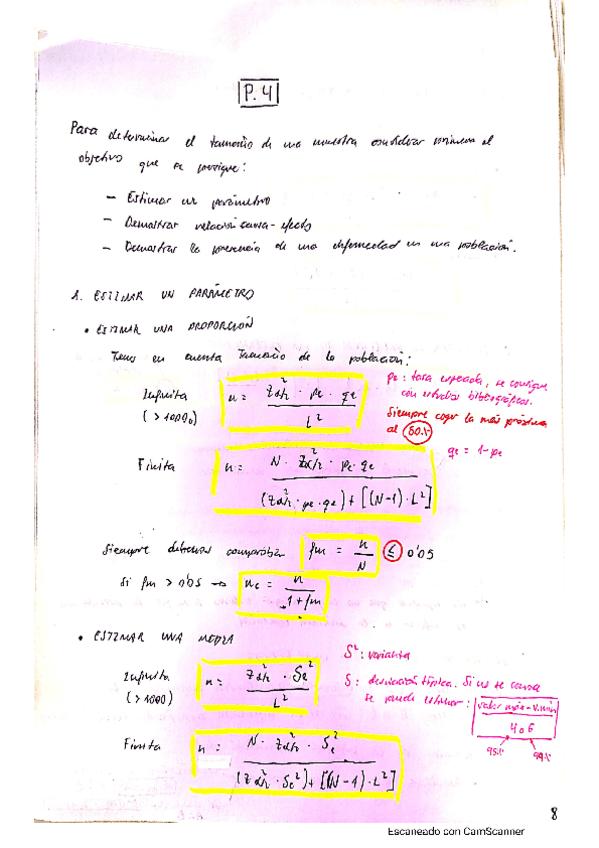 P.4
Para determinar el tamaño de una muestra considerar primero el
objetivo que se persigue:
- Estimar un parámetro
- Demostrar relación causa-efecto
- Demostrar la presencia de una enfermedad en una población.
1. ESTIMAR UN PARÁMETRO
• ESTIMAR UNA PROPORCIÓN
Tener en cuenta Tamaño de la población:
Infinita
(>1000)
n = Zα/2² · pe · qe / L²
pe: tasa esperada, se consigue
con estudios bibliográficos.
Siempre coger la más próxima
al 50%
qe = 1-pe
Finita
n = N · Zα/2² · pe · qe / (Zα/2² · pe · qe) + [(N-1) · L²]
Siempre debemos comprobar fm = n / N ≤ 0'05
Si fm > 0'05 → nc = n / 1+fm
• ESTIMAR UNA MEDIA
Infinita
(>1000)
n = Zα/2² · Se² / L²
S²: varianza
S: desviación típica. Si no se conoce
se puede estimar: valor máx - v.mín / 4 o 6
95% 99%
Finita
n = N · Zα/2² · Se² / (Zα/2² · Se²) + [(N-1) · L²]
8
Escaneado con CamScanner